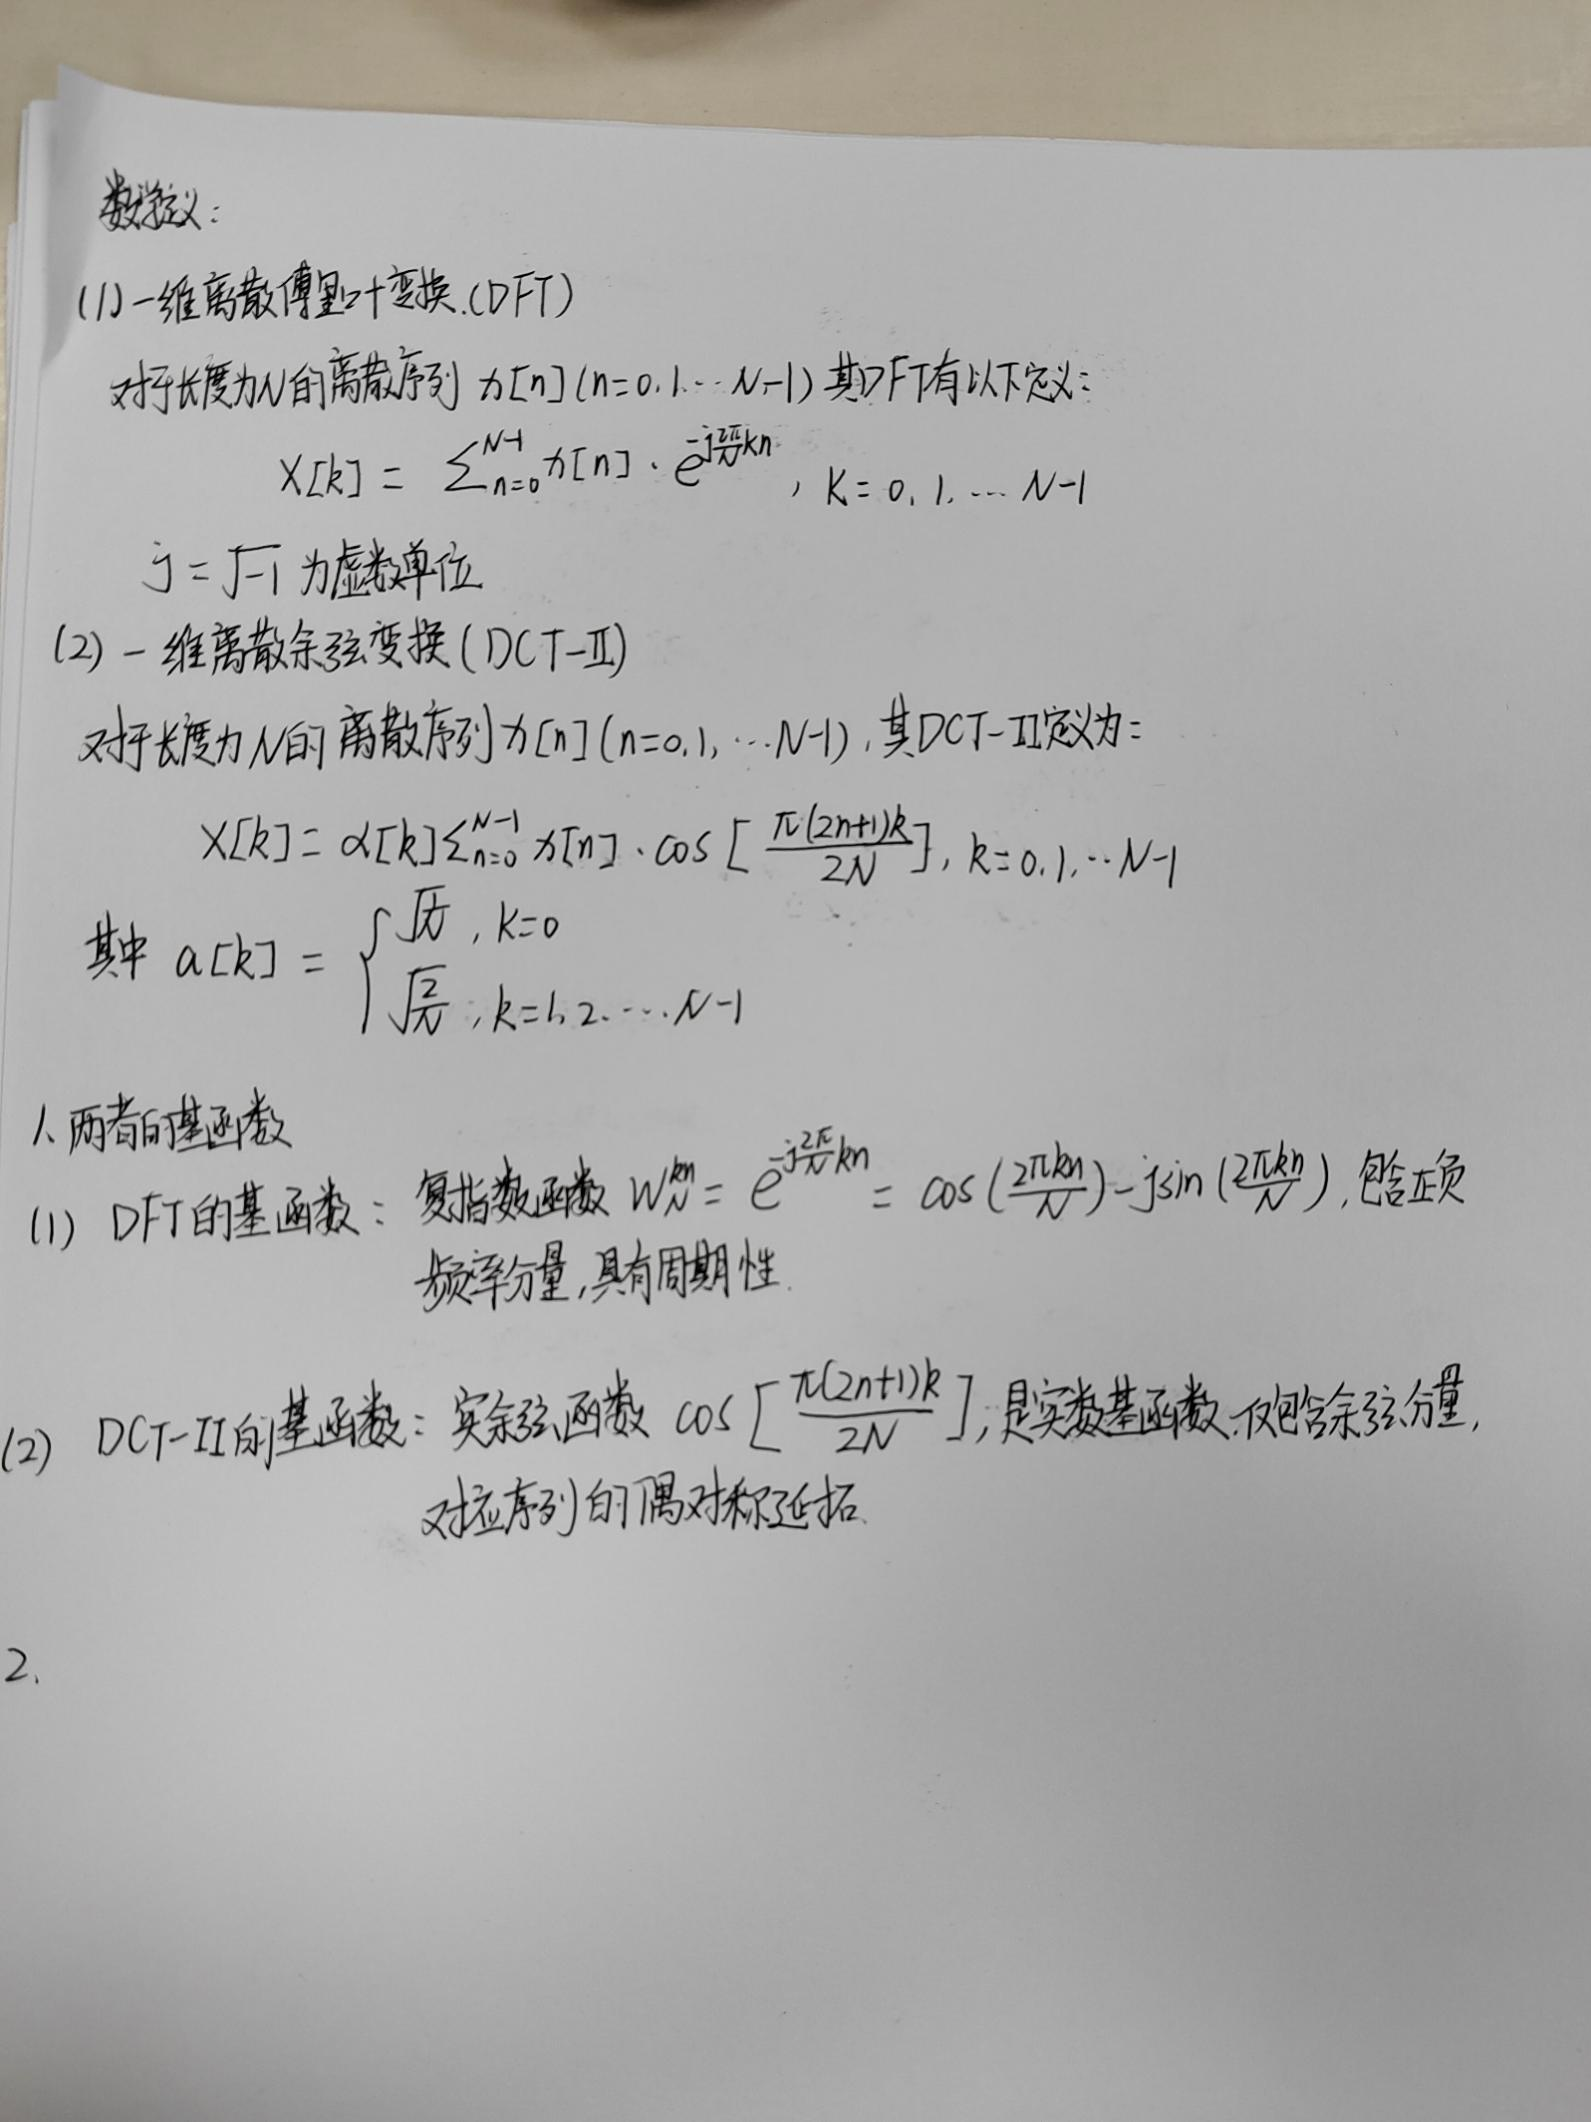 数学定义:
(1) 一维离散傅里叶变换.(DFT)
对于长度为N的离散序列 x[n] (n=0,1...N-1) 其DFT有以下定义:
X[k] = ∑_{n=0}^{N-1} x[n] · e^{-j\frac{2π}{N}kn}, K=0,1,...N-1
j=√-1 为虚数单位
(2) 一维离散余弦变换(DCT-II)
对于长度为N的离散序列x[n] (n=0,1,...N-1),其DCT-II定义为:
X[k]=α[k]∑_{n=0}^{N-1} x[n] · cos[\frac{π(2n+1)k}{2N}], k=0,1,...N-1
其中 a[k] = { √\frac{1}{N}, k=0
√\frac{2}{N}, k=1,2....N-1
1、两者的基函数
(1) DFT的基函数: 复指数函数 W_N^{kn} = e^{-j\frac{2π}{N}kn} = cos(\frac{2πkn}{N})-jsin(\frac{2πkn}{N}),包含正负
频率分量,具有周期性.
(2) DCT-II的基函数: 实余弦函数 cos[\frac{π(2n+1)k}{2N}],是实数基函数.仅包含余弦分量,
对应序列的偶对称延拓.
2、